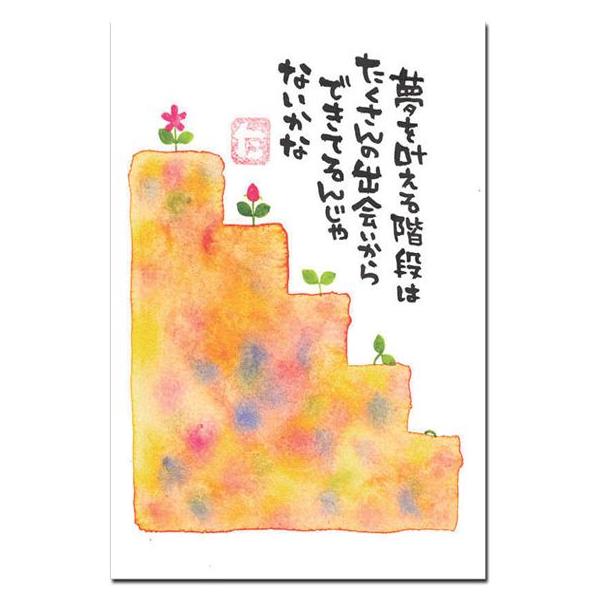 夢を叶える階段は
たくさんの出会いから
できてるんじゃ
ないかな